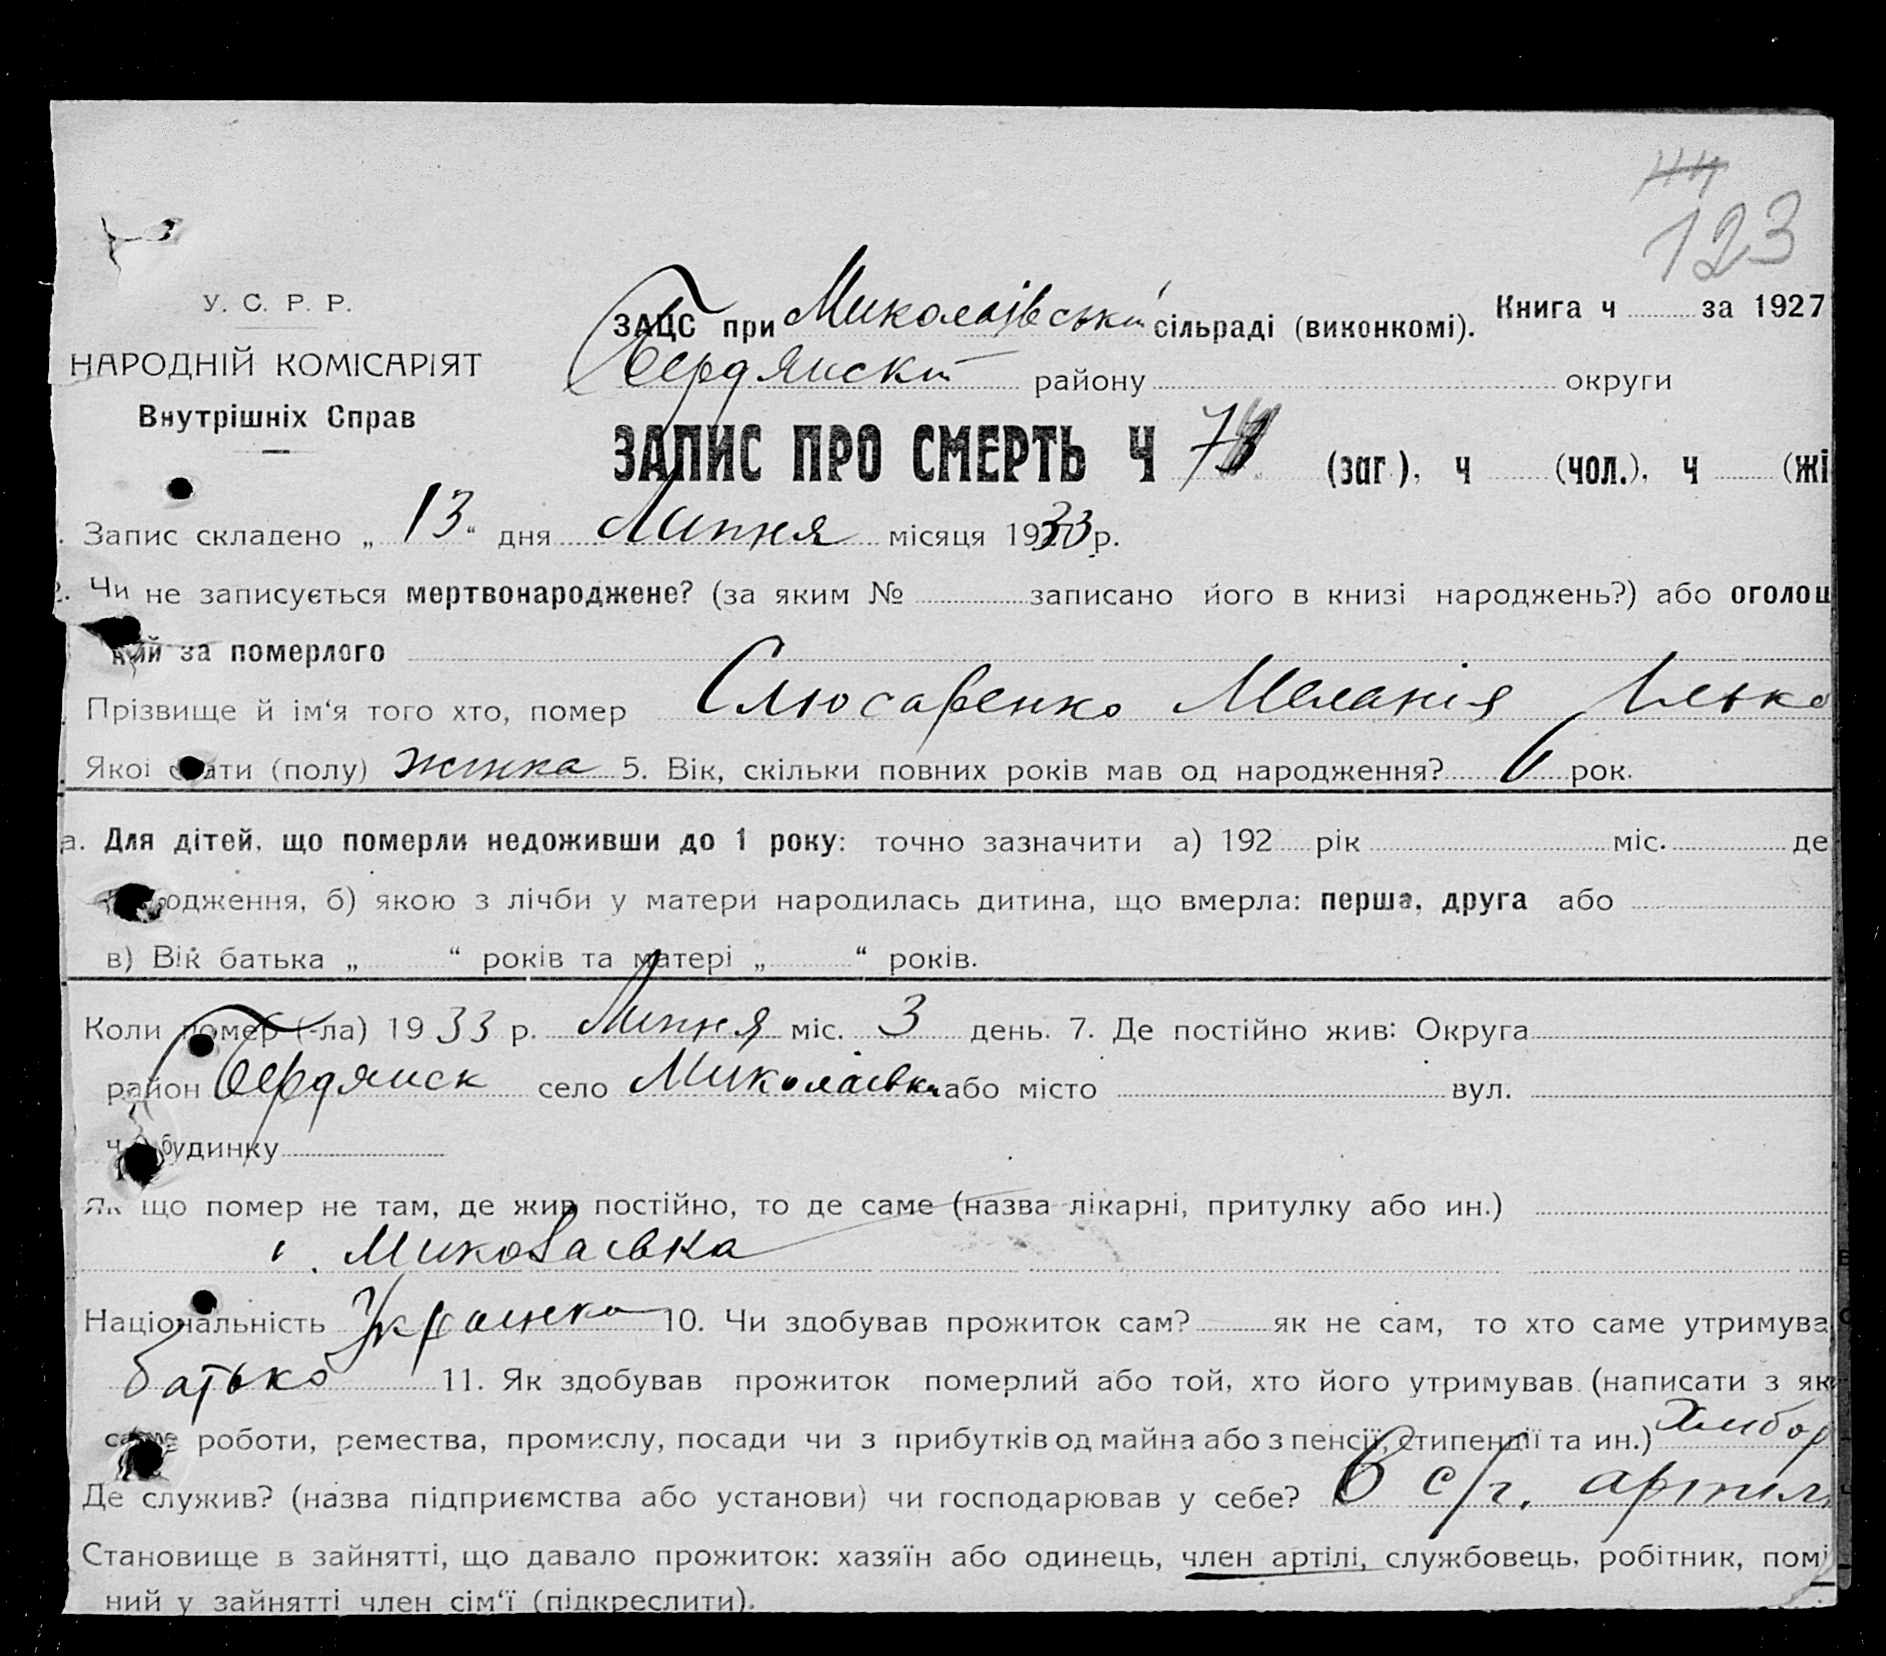 44
123
У. С. Р. Р.
НАРОДНІЙ КОМІСАРІЯТ
Внутрішніх Справ
ЗАЦС при Миколаївській сільраді (виконкомі). Книга ч за 1927
Бердянскій району округи
ЗАПИС ПРО СМЕРТЬ Ч 73 (заг.), ч (чол.), ч (жі
Запис складено „ 13 “ дня Липня місяця 1933 р.
2. Чи не записується мертвонароджене? (за яким № записано його в книзі народжень?) або оголош
кий за померлого
Прізвище й ім‘я того хто, помер Слюсаренко Меланія Ілько
Якої стати (полу) жінка 5. Вік, скільки повних років мав од народження? 6 рок.
а. Для дітей, що померли недоживши до 1 року: точно зазначити а) 192 рік міс. де
родження, б) якою з лічби у матери народилась дитина, що вмерла: перша, друга або
в) Вік батька „ “ років та матері „ “ років.
Коли помер (-ла) 1933 р. Липня міс. 3 день. 7. Де постійно жив: Округа
район Бердянск село Миколаівка або місто вул.
ч. будинку
Як що помер не там, де жив постійно, то де саме (назва лікарні, притулку або ин.)
с. Миколаівка
Національність Украінка 10. Чи здобував прожиток сам? як не сам, то хто саме утримува
батько 11. Як здобував прожиток померлий або той, хто його утримував (написати з як
саме роботи, ремества, промислу, посади чи з прибутків од майна або з пенсії, стипендії та ин.) Хлибор
Де служив? (назва підприємства або установи) чи господарював у себе? В с/г. артіл
Становище в зайнятті, що давало прожиток: хазяїн або одинець, член артілі, службовець, робітник, помі
ний у зайнятті член сім‘ї (підкреслити).